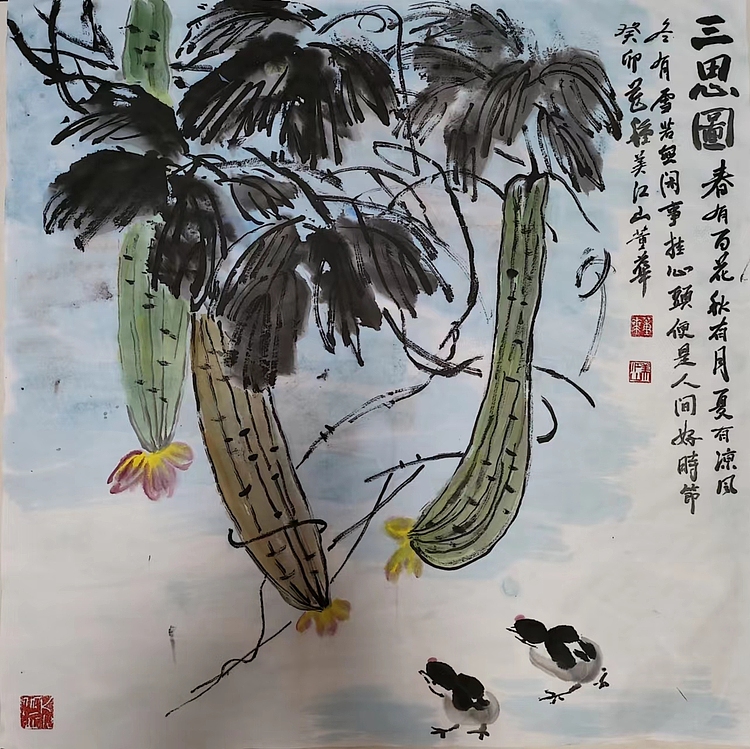 三思圖
春有百花秋有月夏有凉风
冬有雪若無闲事挂心頭便是人间好時節
癸卯 美江山黄華